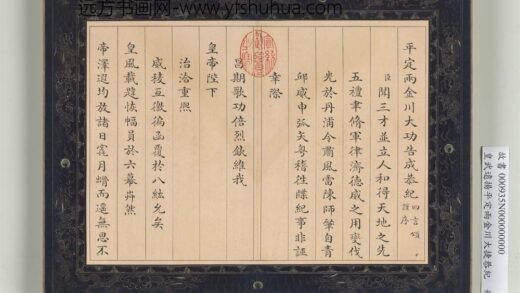 远方书画网- www.yfshuhua.com
平定兩金川大功告成恭紀 四言頌
臣聞三才並立人和得天地之先
五禮聿脩軍律濟德威之用燮伐
光於丹浦令肅風雷陳師肇自青
邱威申弧矢粵稽往牒紀事非誣
幸際
昌期歌功倍烈欽維我
皇帝陛下
治洽重熙
威稜亙徼函覆於八紘允矣
皇風載恢幅員於六幕
帝澤遐均放諸日窟月而遥無思不
故書 000935N000000000
皇武遠揚平定兩金川大捷恭紀